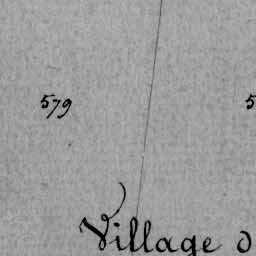 579 5
Village d